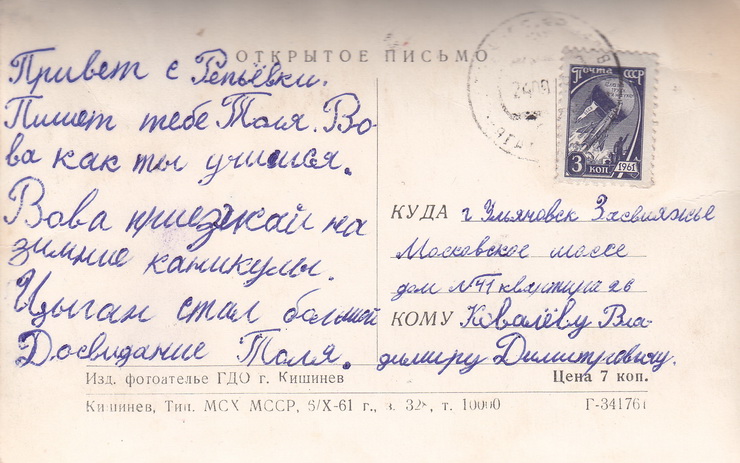 ОТКРЫТОЕ ПИСЬМО
Привет с Репьёвки.
Пишет тебе Толя. Во-
ва как ты учишся.
Вова приезжай на
зимние каникулы.
Цыган стал большой
Досвидание Толя.
Почта СССР
3 КОП
1961
КУДА г Ульяновск Засвияжье
Московское шоссе
дом №41 квартира 26
КОМУ Ковалёву Вла-
димиру Димитровичу.
Изд. фотоателье ГДО г. Кишинев
Цена 7 коп.
Кишинев, Тип. МСХ МССР, 5/X-61 г., з. 328, т. 10000
Г-341761